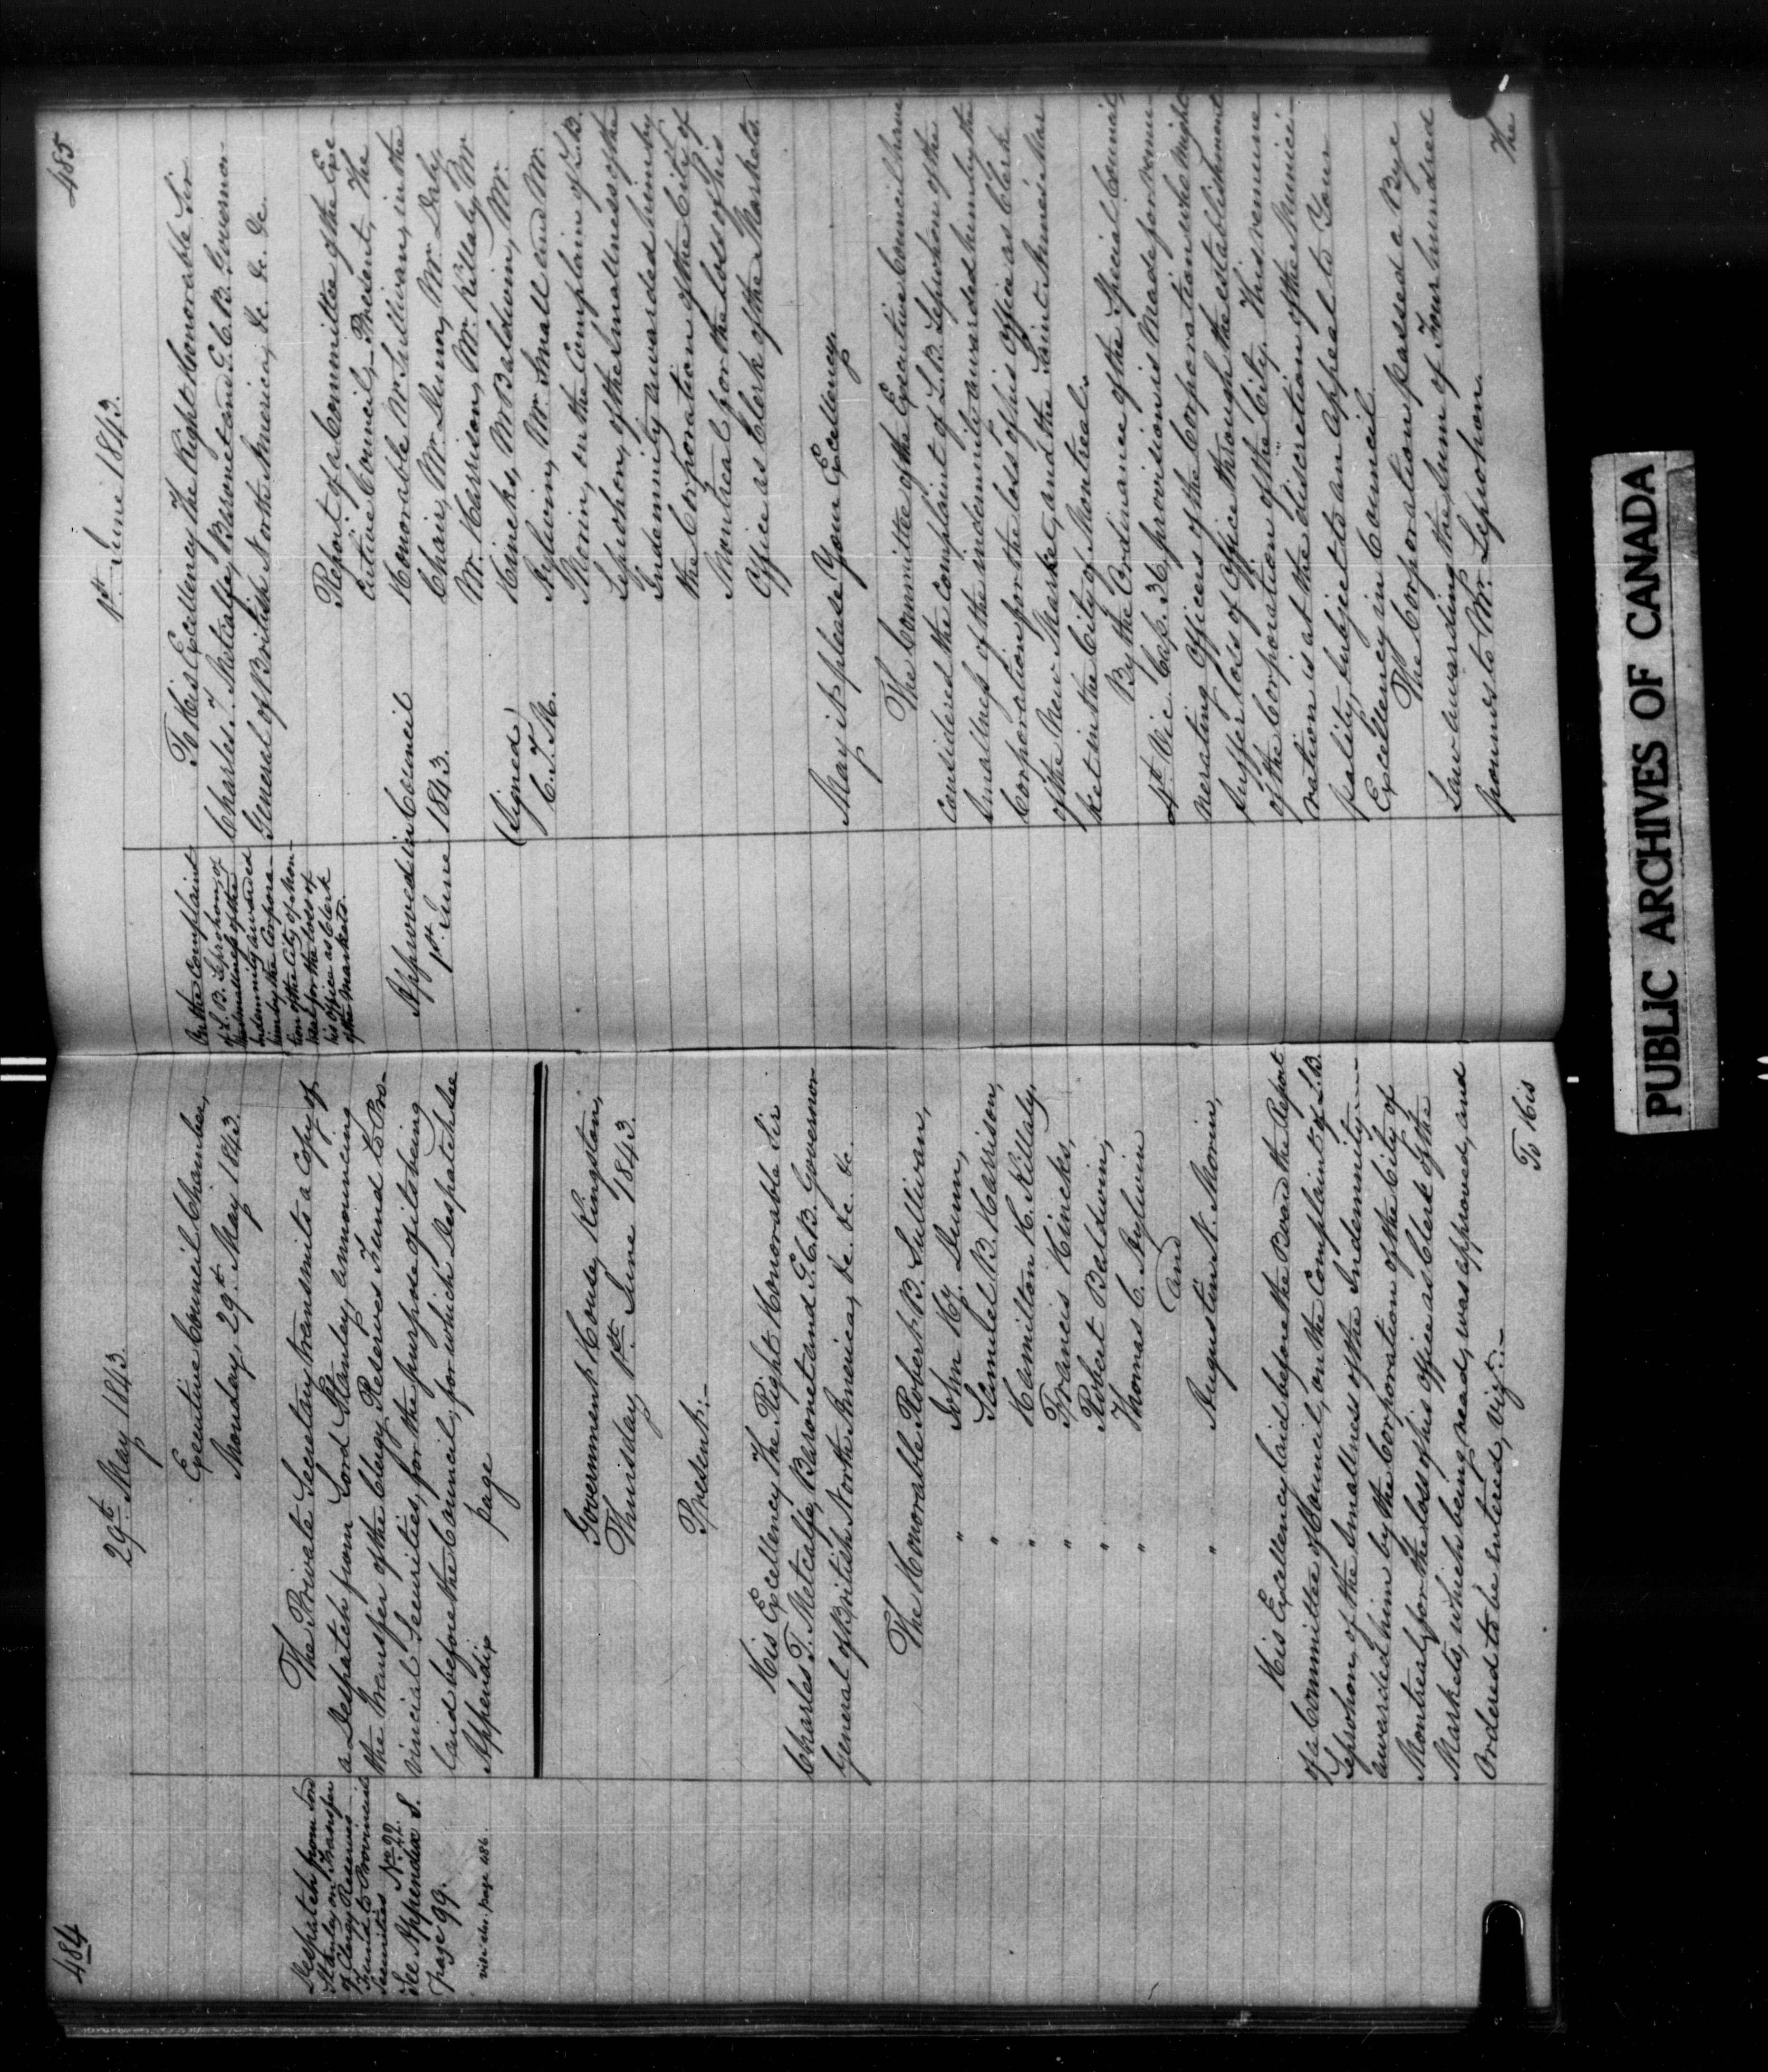 484
29th May 1843.
Executive Council Chamber,
Monday, 29th May 1843.
Despatch from Lord
Stanley on Transfer
of Clergy Reserves
Fund to Provincial
Securities No 22.
See Appendix S.
page 99.
vide also page 486.
The Private Secretary transmits a Copy of
a Despatch from Lord Stanley, announcing
the transfer of the Clergy Reserves Fund to Pro-
vincial Securities, for the purpose of its being
laid before the Council, for which Despatch see
Appendix page
Government House, Kingston,
Thursday 1st June 1843.
Present:-
His Excellency The Right Honorable Sir
Charles T. Metcalfe, Baronet and G.C.B. Governor
General of British North America, &c. &c. &c.
The Honorable Robert B. Sullivan,
" John Hy. Dunn,
" Samuel B. Harrison,
" Hamilton H. Killaly,
" Francis Hincks,
" Robert Baldwin,
" Thomas C. Aylwin
and
" Augustin N. Morin,
His Excellency laid before the Board the Report
of a Committee of Council, on the Complaint of L.B.
Leprohon, of the Smallness of the Indemnity
awarded him by the Corporation of the City of
Montreal, for the loss of his office as Clerk of the
Markets, which being read, was approved, and
Ordered to be entered, Viz:-
To His
485
1st June 1843.
On the Complaint
of L. B. Leprohon, of
the smallness of the
Indemnity awarded
him by the Corpora-
tion of the City of Mon-
treal for the loss of
his office as Clerk
of the Markets.
To His Excellency The Right Honorable Sir
Charles T. Metcalfe, Baronet and G.C.B. Governor
General of British North America, &c. &c. &c.
Report of a Committee of the Exe-
cutive Council, Present, The
Honorable Mr. Sullivan, in the
Chair, Mr. Dunn, Mr. Daly,
Mr. Harrison, Mr. Killaly, Mr.
Hincks, Mr Baldwin, Mr.
Aylwin, Mr. Small and Mr.
Morin, on the Complain of L.B.
Leprohon, of the Smallness of the
Indemnity awarded him by
the Corporation of the City of
Montreal for the loss of his
Office as Clerk of the Markets.
Approved in Council
1st June 1843.
(Signed)
C. T. M.
May it please Your Excellency.
The Committee of the Executive Council have
considered the complaint of L.B. Leprohon of the
Smallness of the indemnity awarded him by the
Corporation for the loss of his Office as Clerk
of the New Market, and the Saint Anne's Mar
ket in the City of Montreal.
By the Ordinance of the Special Council,
4th Vic. Cap. 36, provision is Made for remu
nerating Officers of the Corporation who might
suffer loss of Office through the establishment
of the Corporation of the City. This remune
ration is at the discretion of the Munici-
pality, subject to an appeal to Your
Excellency in Council.
The Corporation passed a Bye
Law awarding the Sum of Four hundred
pounds to Mr. Leprohon.
The
PUBLIC ARCHIVES OF CANADA